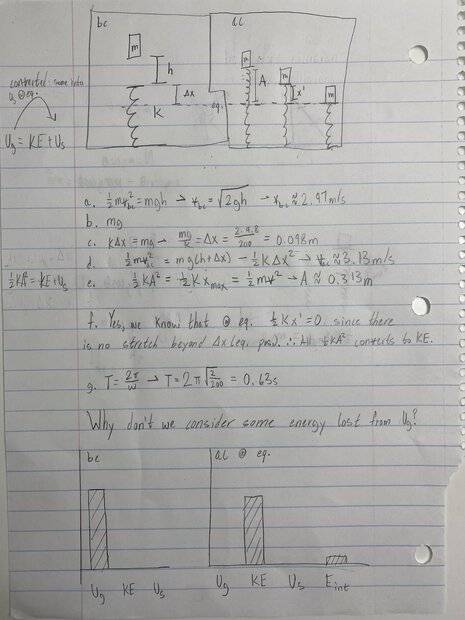 bc
ac
m
h
Δx
K
eq.
m
A
m
x'
m
converted some into
Us @ eq.
Ug = KE + Us
a. ½mv²bc = mgh → vbc = √2gh → vbc ≈ 2.97 m/s
b. mg
c. KΔx = mg → mg/K = Δx = 2·9.8/200 = 0.098m
d. ½mv²bc = mg(h+Δx) - ½KΔx² → vbc ≈ 3.13 m/s
½KA² = KE + Us
e. ½KA² = ½Kxmax = ½mv² → A ≈ 0.313m
f. Yes, we know that @ eq. ½Kx' = 0 since there
is no stretch beyond Δx (eq. pos.) ∴ All ½KA² converts to KE.
g. T = 2π/ω → T = 2π√2/200 = 0.63s
Why don't we consider some energy lost from Ug?
bc
ac @ eq.
Ug KE Us
Ug KE Us Eint